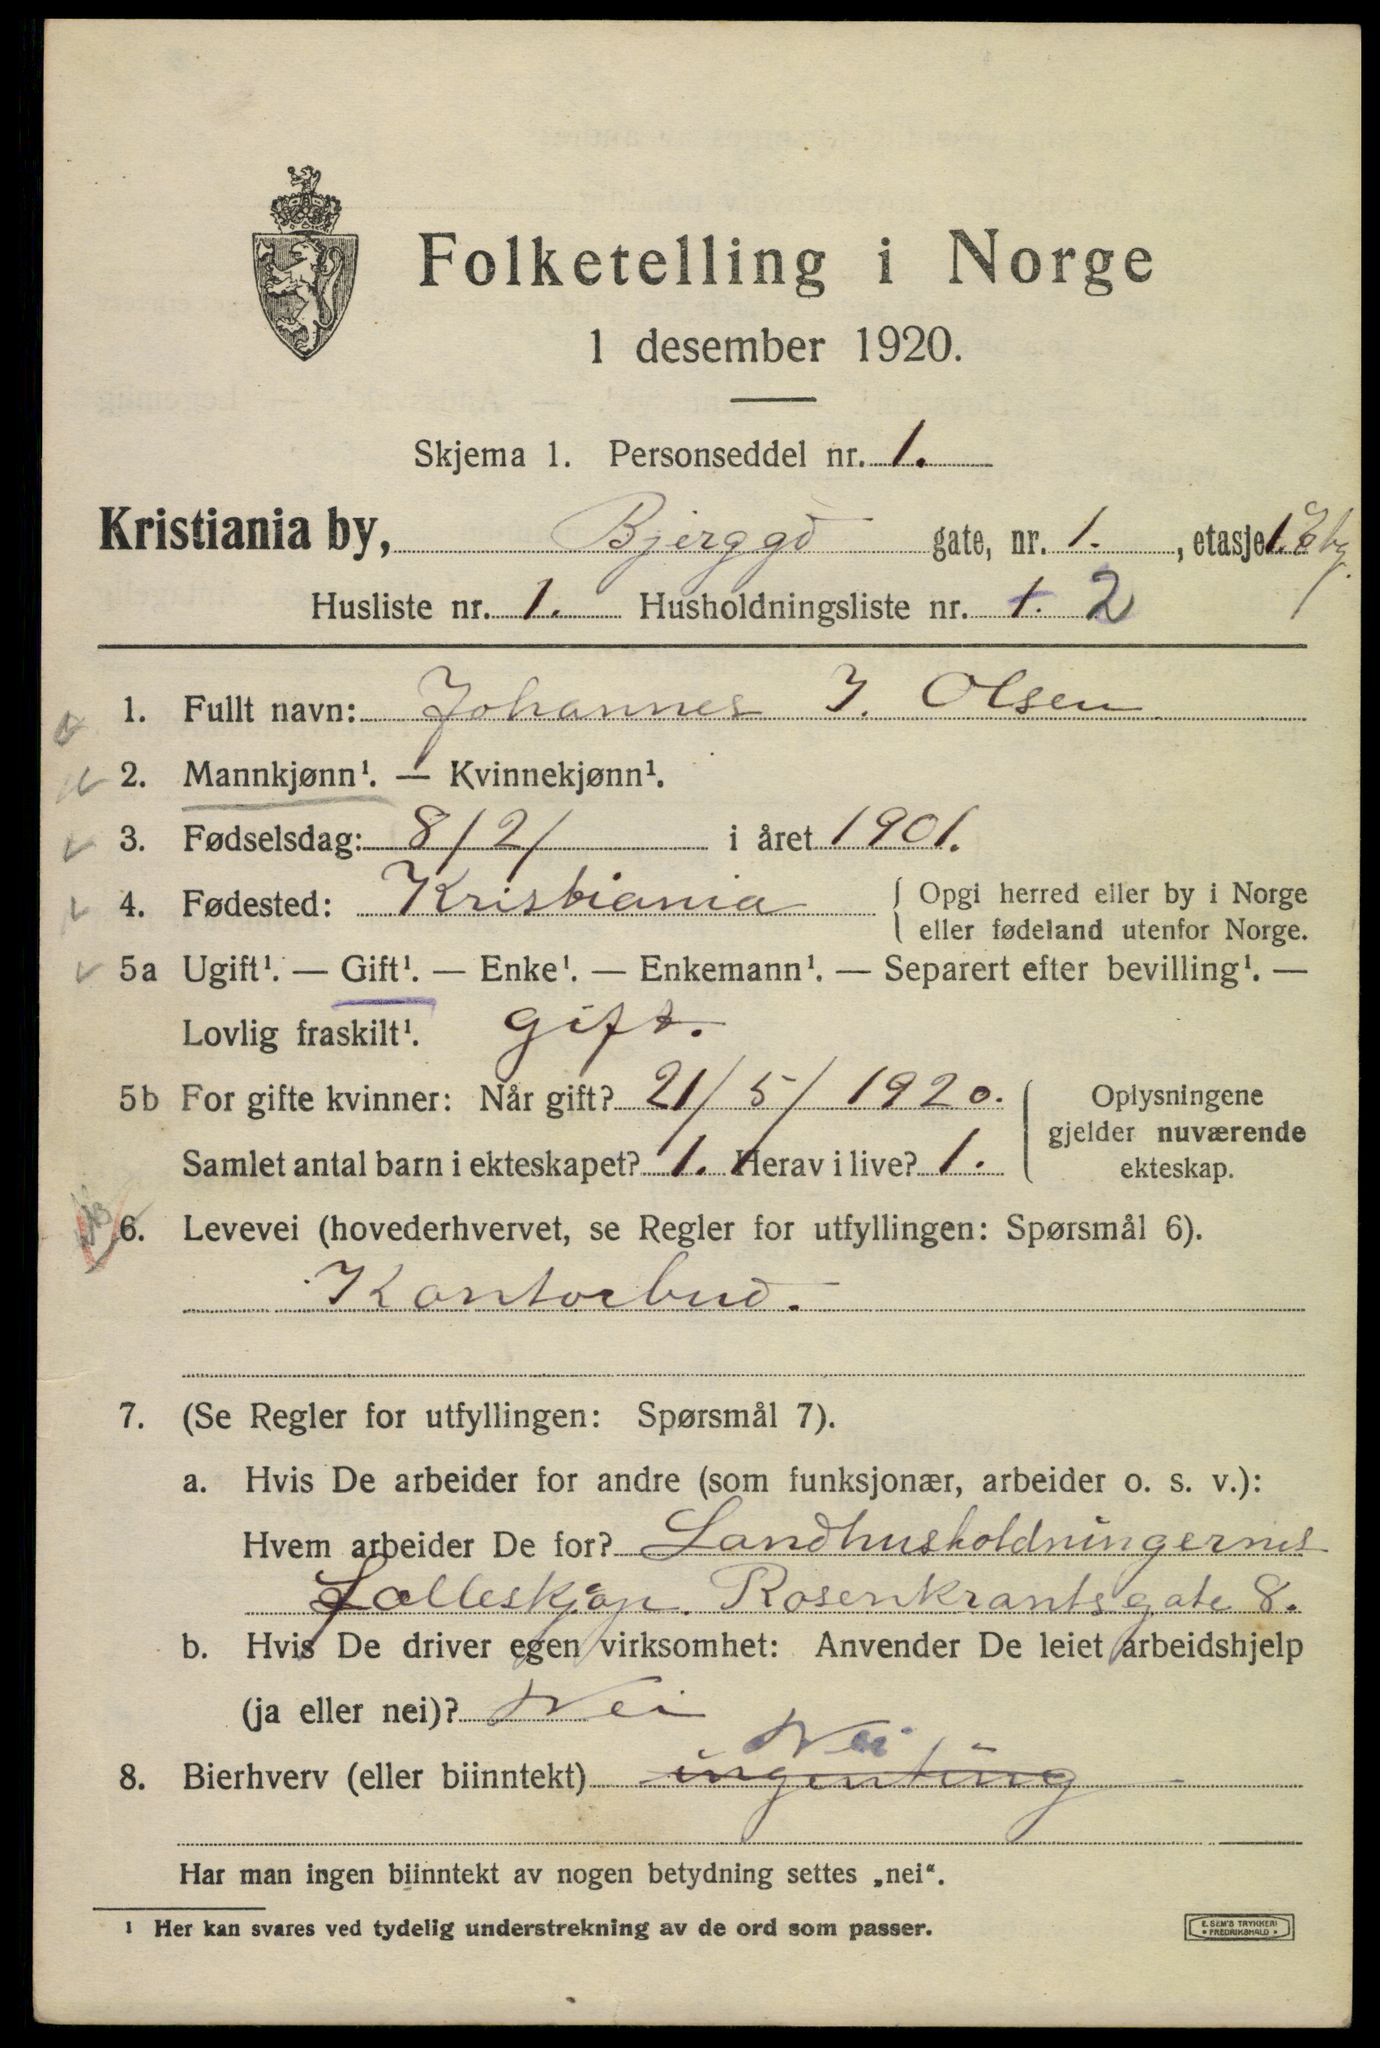 Folketelling i Norge
1 desember 1920.
Skjema 1. Personseddel nr. 1.
Kristiania by, Bjerggd gate, nr. 1. , etasje 1. Etg.
Husliste nr. 1. Husholdningsliste nr. 1. 2
1. Fullt navn: Johannes I. Olsen
2. Mannkjønn¹. — Kvinnekjønn¹.
3. Fødselsdag: 8/2/ i året 1901.
4. Fødested: Kristiania { Opgi herred eller by i Norge
eller fødeland utenfor Norge.
5a Ugift¹. — Gift¹. — Enke¹. — Enkemann¹. — Separert efter bevilling¹. —
Lovlig fraskilt¹. gift.
5b For gifte kvinner: Når gift? 21/5/1920. { Oplysningene
gjelder nuværende
Samlet antal barn i ekteskapet? 1. Herav i live? 1. ekteskap.
6. Levevei (hovederhvervet, se Regler for utfyllingen: Spørsmål 6).
Kontorbud.
7. (Se Regler for utfyllingen: Spørsmål 7).
a. Hvis De arbeider for andre (som funksjonær, arbeider o. s. v.):
Hvem arbeider De for? Landhusholdningernes
Fælleskjøp. Rosenkrantsgate 8.
b. Hvis De driver egen virksomhet: Anvender De leiet arbeidshjelp
(ja eller nei)? Nei
Nei
8. Bierhverv (eller biinntekt) ingenting
Har man ingen biinntekt av nogen betydning settes „nei“.
¹ Her kan svares ved tydelig understrekning av de ord som passer.
E. SEM'S TRYKKERI
FREDRIKSHALD